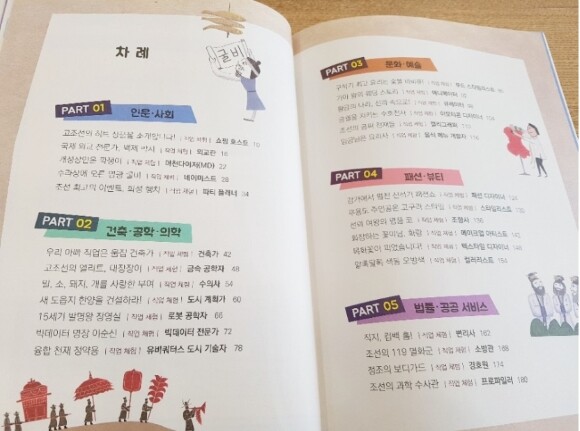 차 례
굴비
PART 01 인문·사회
고조선의 히트 상품을 소개합니다! | 직업 체험 | 쇼핑 호스트 10
국제 외교 전문가, 백제 박사 | 직업 체험 | 외교관 16
개성상인은 | 직업 체험 | 머천다이저(MD) 22
수라상에 오른 영광 굴비 | 직업 체험 | 네이미스트 28
조선 최고의 이벤트, 화성 행차 | 직업 체험 | 파티 플래너 34
PART 02 건축·공학·의학
우리 아빠 직업은 움집 건축가 | 직업 체험 | 건축가 42
고조선의 엘리트, 대장장이 | 직업 체험 | 금속 공학자 48
말, 소, 돼지, 개를 사랑한 부여 | 직업 체험 | 수의사 54
새 도읍지 한양을 건설하라! | 직업 체험 | 도시 계획가 60
15세기 발명왕 장영실 | 직업 체험 | 로봇 공학자 66
빅데이터 명장 이순신 | 직업 체험 | 빅데이터 전문가 72
융합 천재 정약용 | 직업 체험 | 유비쿼터스 도시 기술자 78
PART 03 문화·예술
| 직업 체험 | 푸드 스타일리스트
가야 왕의 웨딩 스토리 | 직업 체험 | 애니메이터
황금의 나라, 신라 속으로! | 직업 체험 | 큐레이터
| 직업 체험 |
조선의 공파 천재들 | 직업 체험 | 캘리그래퍼
임금님은 요리사 | 직업 체험 | 음식 메뉴 개발자
PART 04 패션·뷰티
| 직업 체험 | 패션 디자이너
| 직업 체험 | 스타일리스트
| 직업 체험 | 조향사
화장하는 꽃미남, 화랑 | 직업 체험 | 메이크업 아티스트 142
목화꽃이 피었습니다! | 직업 체험 | 텍스타일 디자이너 148
알록달록 색동 오방색 | 직업 체험 | 컬러리스트
PART 05 법률·공공 서비스
직지, 컴백 홈! | 직업 체험 | 변리사 162
조선의 119 멸화군 | 직업 체험 | 소방관 168
정조의 보디가드 | 직업 체험 | 경호원 174
조선의 과학 수사관 | 직업 체험 | 프로파일러 180